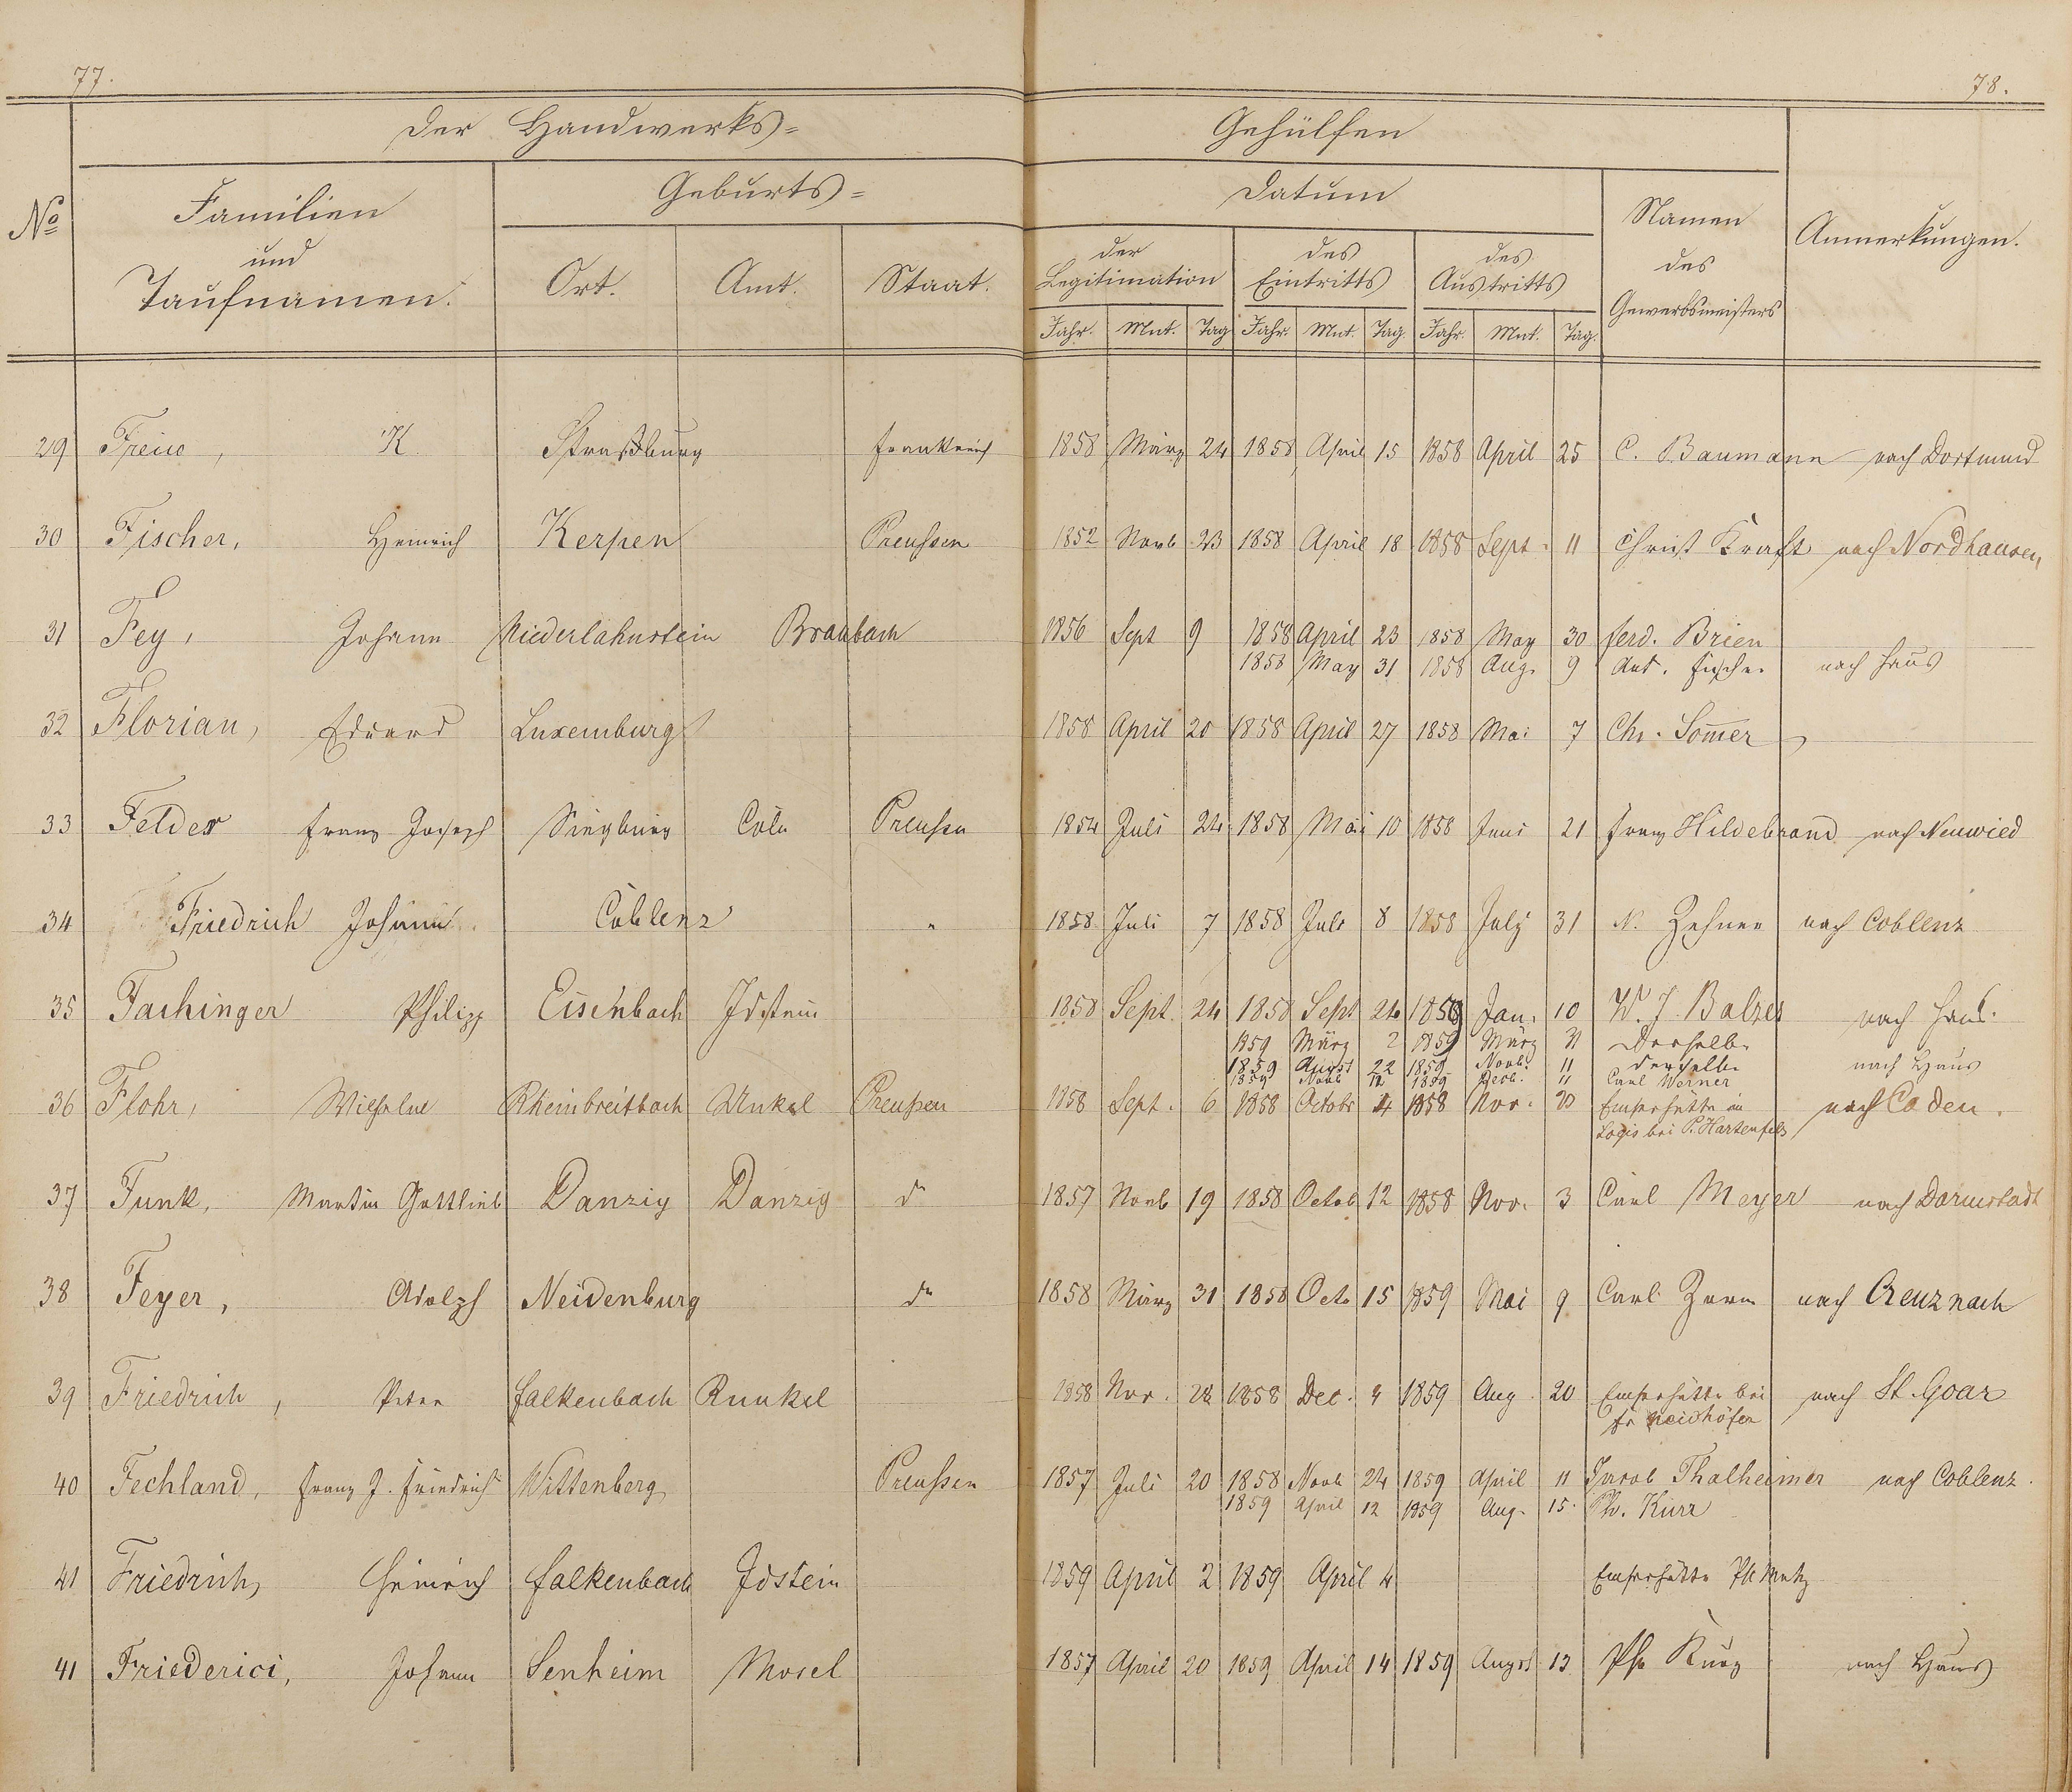 77.
78.
Der Handwerks= Gehülfen
No
Familien und Taufnamen.
Geburts=
Ort. Amt. Staat.
Datum
der Legitimation
des Eintritts
des Austritts
Jahr. Mnt. Tag Jahr. Mnt. Tag. Jahr. Mnt. Tag.
Namen des Gewerbsmeisters
Anmerkungen.
29 K. Straßburg Frankreich 1858 März 24 1858 April 15 1858 April 25 C. Baumann nach Dortmund
30 Fischer, Heinrich Kerpen Preußen 1852 Novb 23 1858 April 18 1858 Sept. 11 Christ Kraft nach Nordhausen,
31 Fey, Johann Niederlahnstein Braubach 1856 Sept 9 1858 April 23 1858 May 30 Ferd. Brien
1858 May 31 1858 Aug. 9 Ant. Fischer nach Haus
32 Florian, Eduard Luxemburg 1858 April 20 1858 April 27 1858 Mai 7 Chr. Som̅er
33 Felder Franz Joseph Siegburg Cöln Preußen 1854 Juli 24 1858 Mai 10 1858 Juni 21 Franz Hildebrand nach Neuwied
34 Friedrich Johann Coblenz " 1858 Juli 7 1858 Juli 8 1858 July 31 N. Zehner nach Coblenz
35 Fachinger Philipp Eisenbach Idstein 1858 Sept. 24 1858 Sept 24 1859 Jan. 10 W. J. Balzer nach Haus.
1859 März 2 1859 März 31 Derselbe
1859 August 22 1859 Novb. 11 derselbe nach Haus
1859 Novb 12 1859 Decb. 11 Carl Werner
36 Flohr, Wilhelm Rheinbreitbach Unkel Preußen 1858 Sept. 6 1858 Octobr 4 1858 Nov. 20 Emserhütte in nach Caden.
Logis bei P. Hartenfels
37 Funk, Martin Gottlieb Danzig Danzig do 1857 Novb 19 1858 Octob 12 1858 Nov. 3 Carl Meyer nach Darmstadt
38 Feyer, Adolph Neidenburg do 1858 März 31 1858 Octo 15 1859 Mai 9 Carl Zorn nach Creuznach
39 Friedrich, Peter Falkenbach Runkel 1858 Nov. 28 1858 Dec. 4 1859 Aug. 20 Emserhütte bei nach St. Goar
Fr Neidhöfer
40 Fechland, Franz J. Friedrich Wittenberg Preußen 1857 Juli 20 1858 Novb 24 1859 April 11 Jacob Thalheimer nach Coblenz.
1859 April 12 1859 Aug. 15. Ph. Kurz
41 Friedrich, Heinrich Falkenbach Idstein 1859 April 2 1859 April 4 Emserhütte Ph Metz
41 Friederici, Johann Senheim Mosel 1857 April 20 1859 April 14 1859 August 13 Ph. Kurz nach Haus